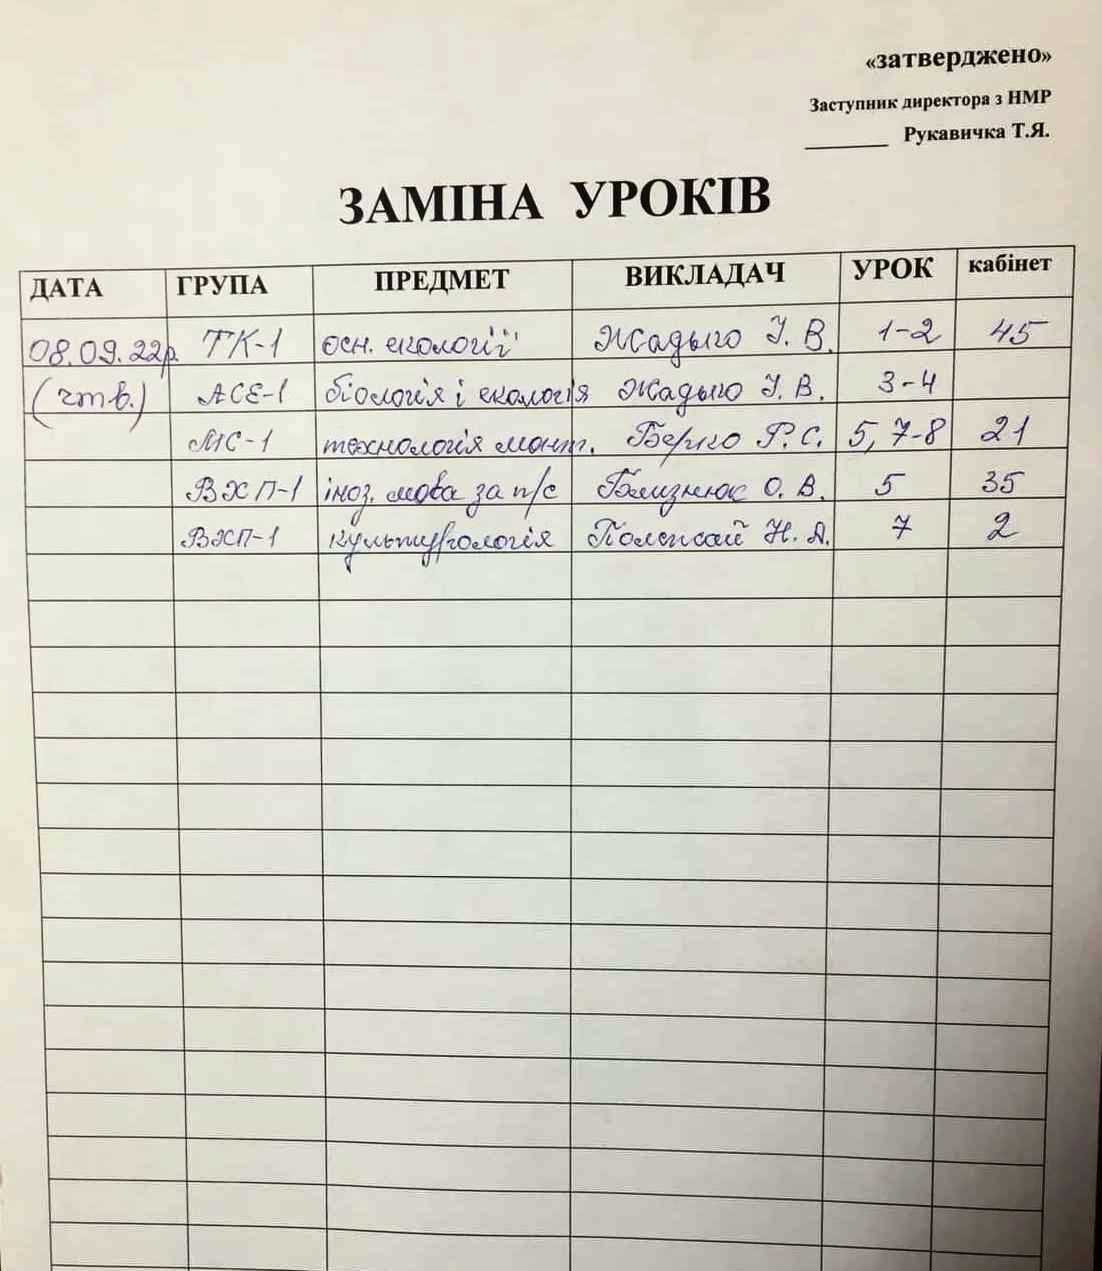 «затверджено»
Заступник директора з НМР
Рукавичка Т.Я.
ЗАМІНА УРОКІВ
ДАТА ГРУПА ПРЕДМЕТ ВИКЛАДАЧ УРОК кабінет
08.09.22р. ТК-1 осн. екології Жадьго І. В. 1-2 45
(чтв.) АСЕ-1 біологія і екологія Жадьго І. В. 3-4
МС-1 технологія монт. Берко Р. С. 5, 7-8 21
ВХП-1 іноз. мова за п/с Близнюк О. В. 5 35
ВХП-1 культурологія Н. Я. 7 2